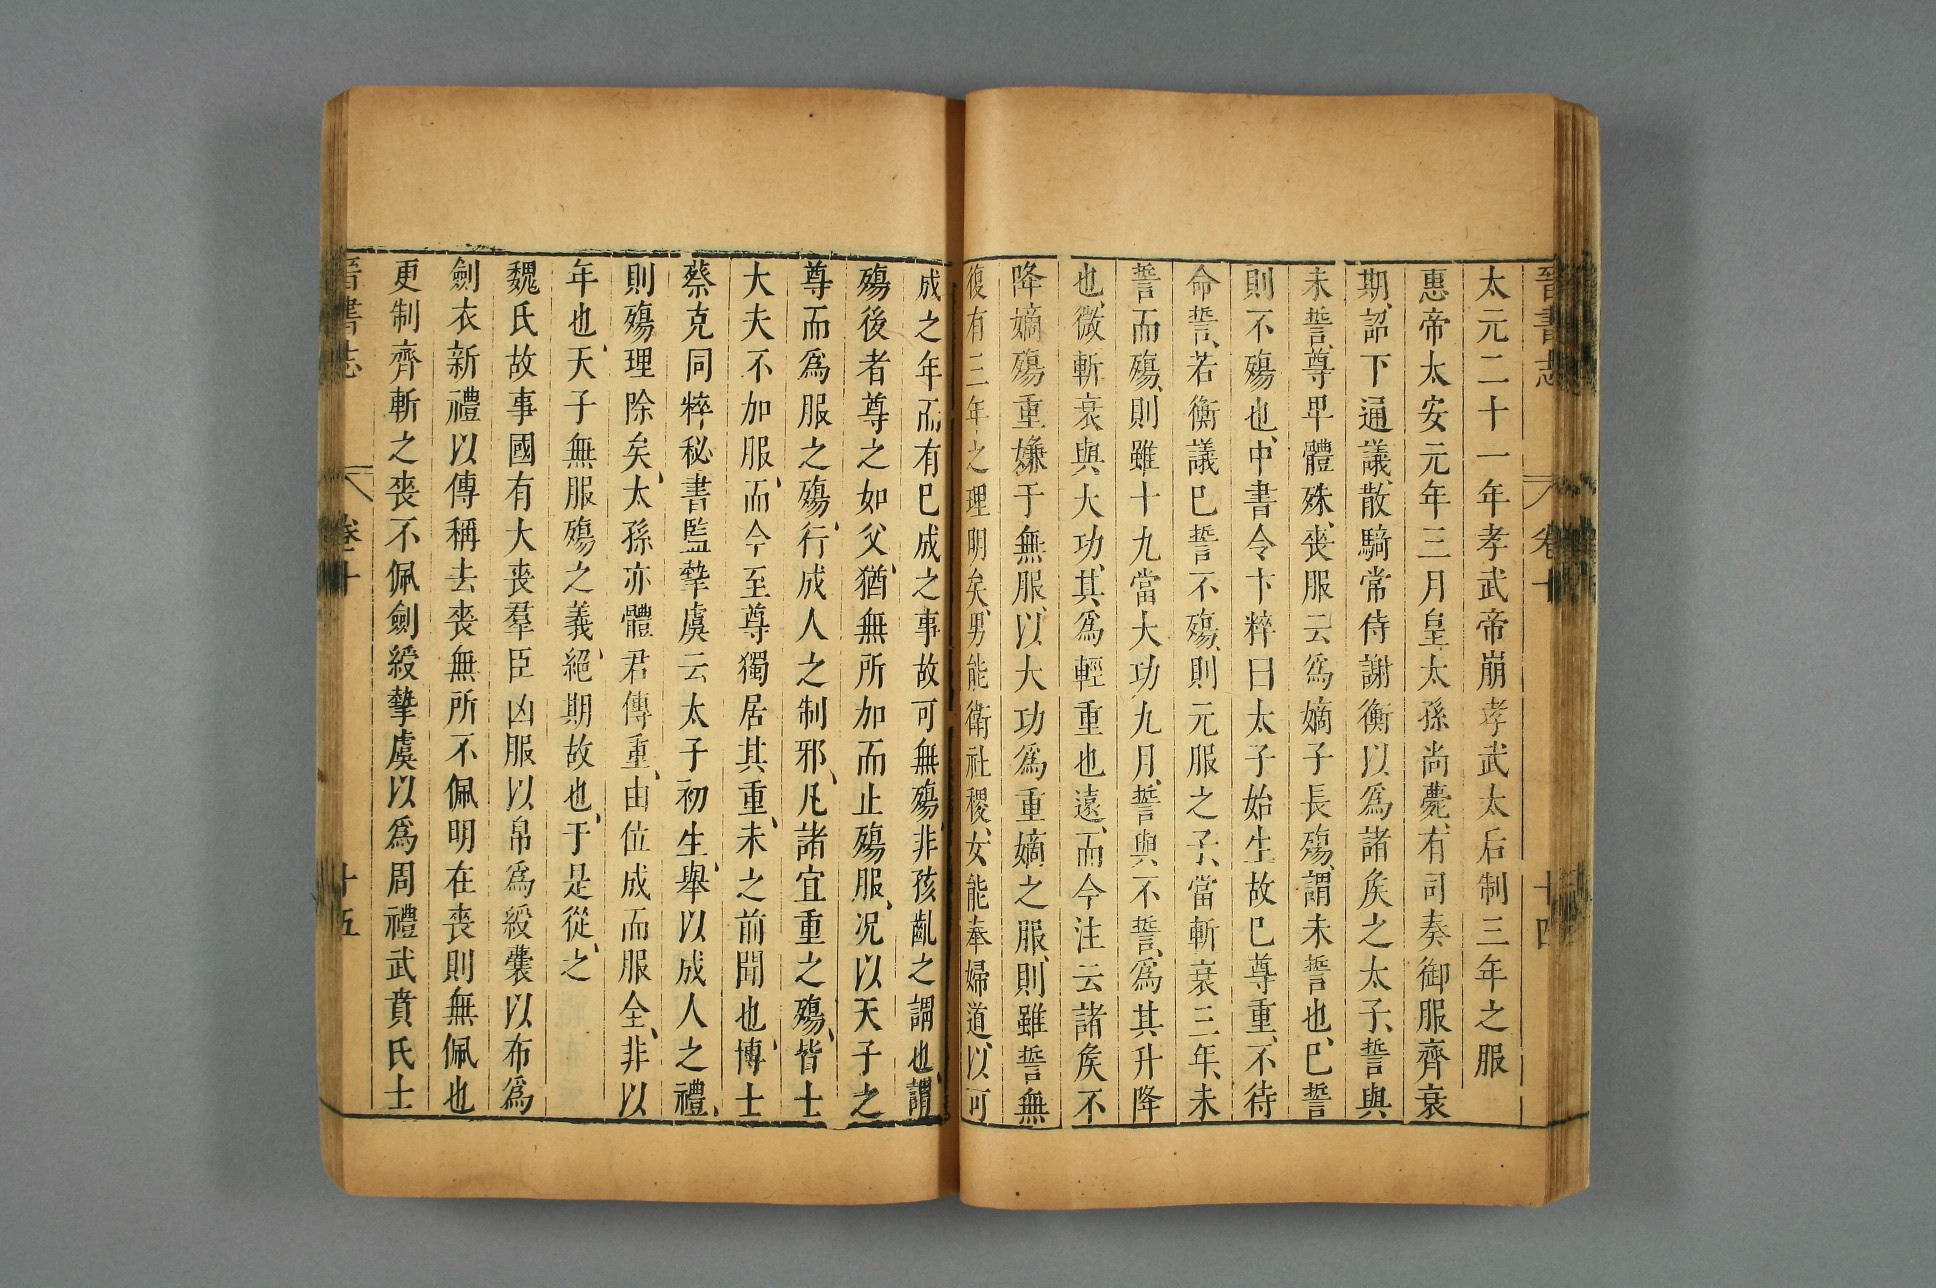 晉書志 卷十 十四
太元二十一年孝武帝崩孝武太后制三年之服
惠帝太安元年三月皇太孫尚薨、有司奏御服齊衰
期、詔下通議、散騎常侍謝衡以爲諸矦之太子、誓與
未誓、尊卑體殊、喪服云爲嫡子長殤、謂未誓也、已誓
則不殤也、中書令卞粹曰太子始生故已尊重、不待
命誓、若衡議已誓不殤、則元服之子、當斬衰三年、未
誓而殤、則雖十九當大功九月、誓與不誓、爲其升降
也、微斬衰與大功、其爲輕重也遠、而今注云諸矦不
降嫡殤重嫌于無服、以大功爲重嫡之服、則雖誓無
復有三年之理明矣、男能衛社稷、女能奉婦道、以可
成之年而有已成之事故可無殤、非孩齔之謂也、謂
殤後者尊之如父、猶無所加而止殤服、况以天子之
尊而爲服之殤、行成人之制邪、凡諸宜重之殤、皆士
大夫不加服、而今至尊獨居其重、未之前聞也、博士
蔡克同粹、秘書監摯虞云太子初生、舉以成人之禮、
則殤理除矣、太孫亦體君傳重、由位成而服全、非以
年也、天子無服殤之義、絕期故也、于是從之、
魏氏故事國有大喪羣臣凶服以帛爲綬囊以布爲
劍衣新禮以傳稱去喪無所不佩明在喪則無佩也
更制齊斬之喪不佩劍綬摯虞以爲周禮武賁氏士
晉書志 卷十 十五